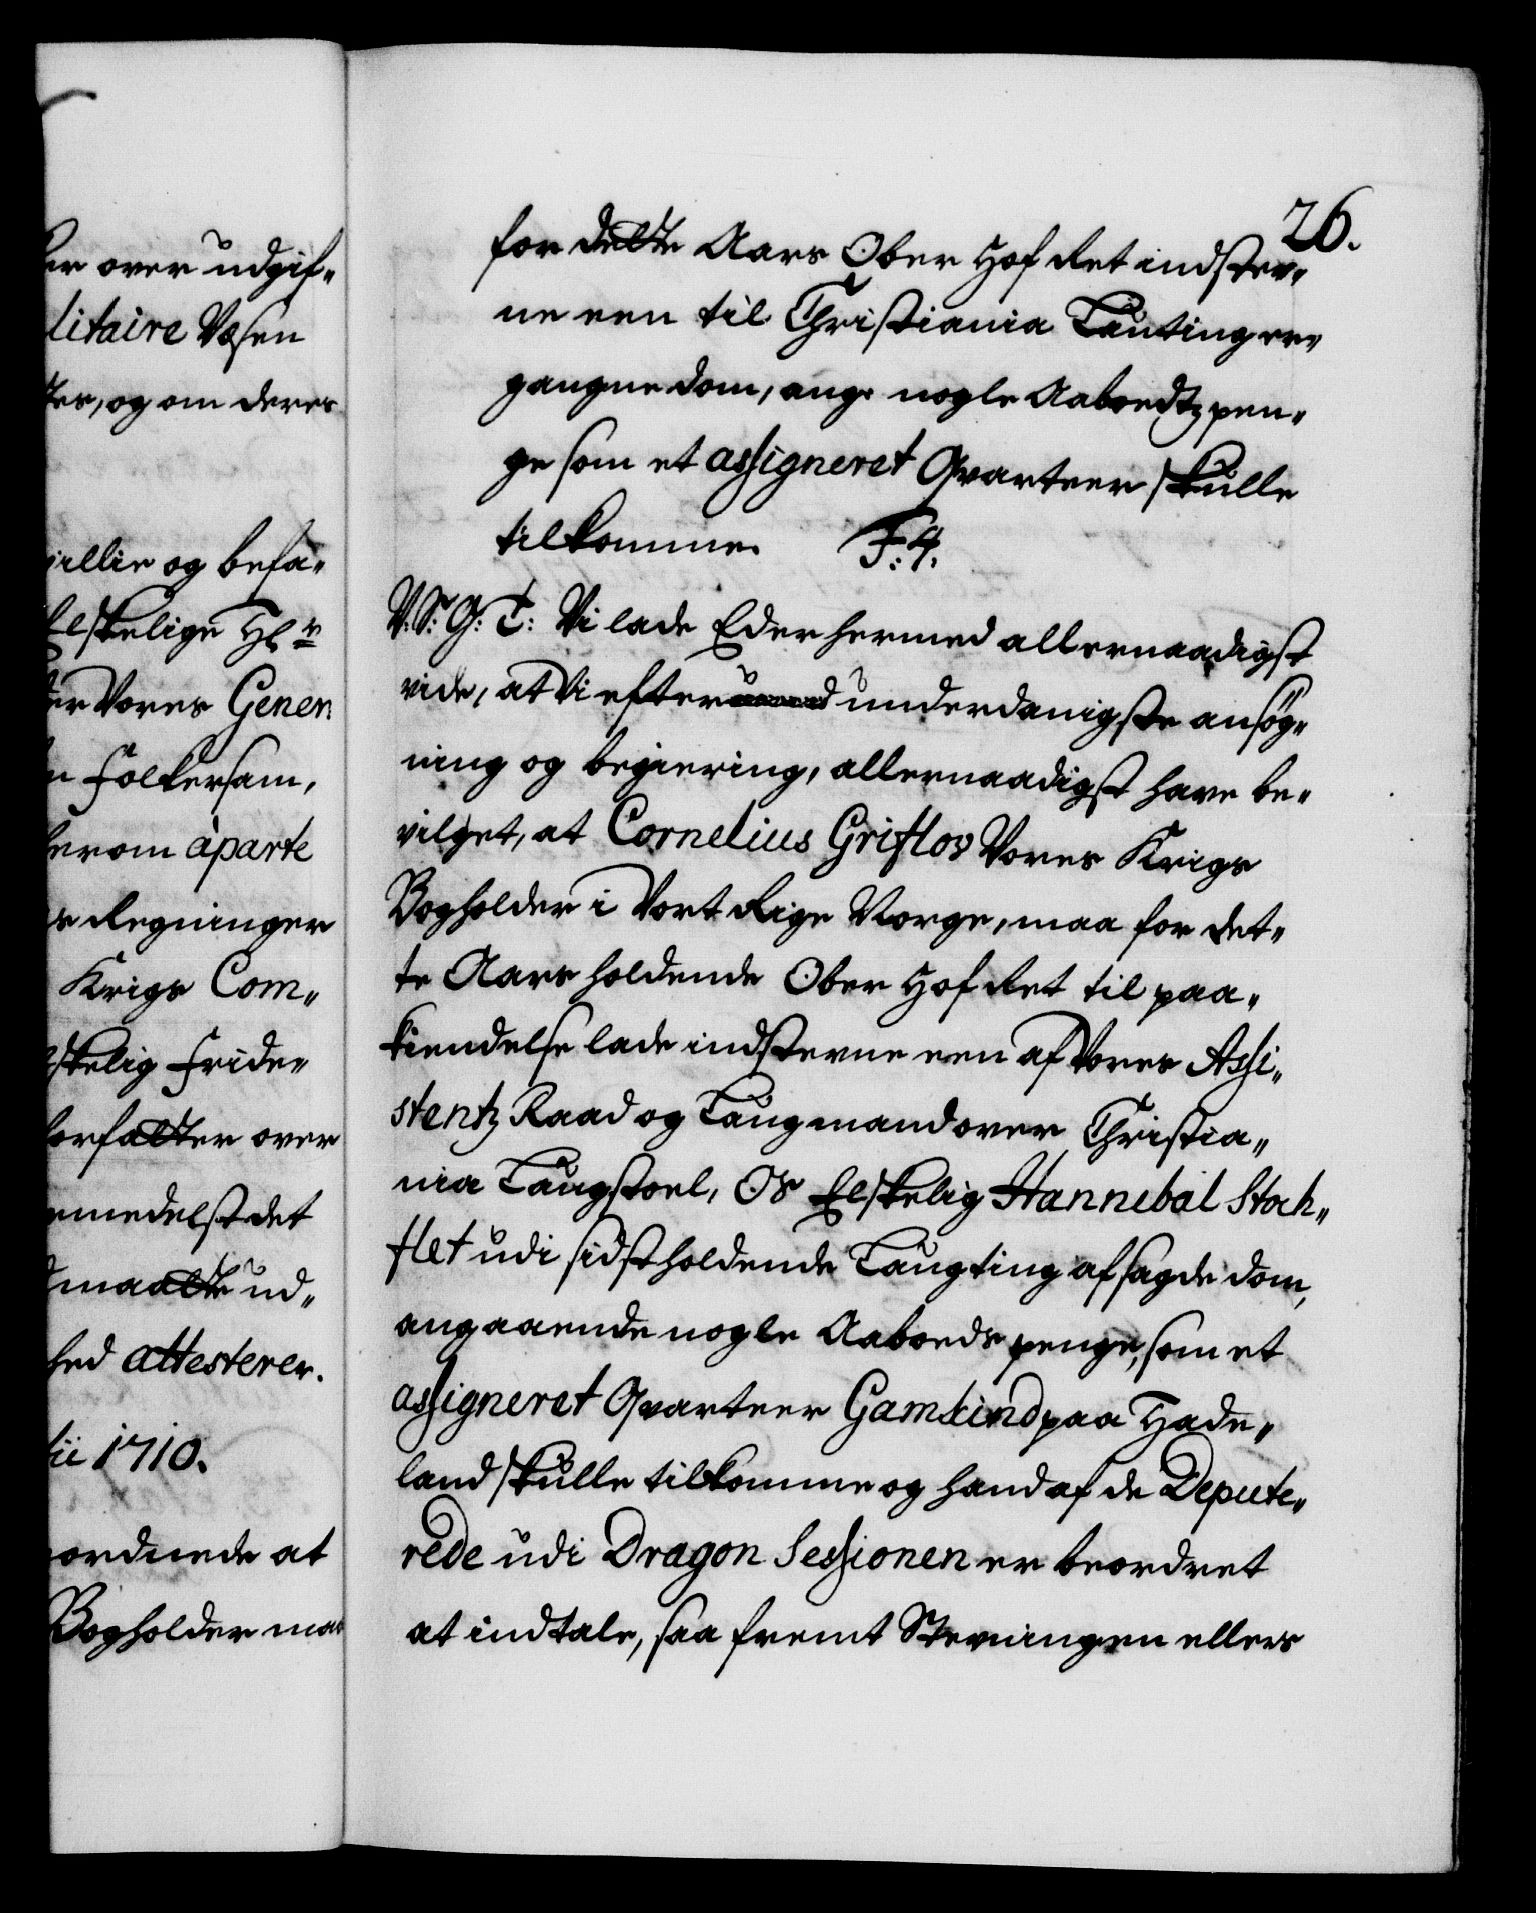 er over udgif„
litaire Væsen
tes, og om deres
villie og befa„
Elskelige Hr
er Vores Gener
n Folkersam,
herom àparte
s Regninger
Krigs Com„
lskelig Fride„
forfatter over
emedelst det
maatte ud„
hed attesterer.
1710.
ordnede at
Bogholder maa
26.
for dette Aars Ober Hof Ret indstev„
ne een til Christiania Lauting er„
gangne dom, ang: nogle Aaboedtz pen„
ge som et assigneret Qvarteer skulle
tilkomme. F: 4.
V: S: G: T: Vi lade Eder hermed allernaadigst
vide, at Vi efter underdanigste ansøg„
ning og begiering, allernaadigst have be„
vilget, at Cornelius Griflov Vores Krigs
Bogholder i Vort Rige Norge, maa for det„
te Aars holdende Ober Hof Ret til paa„
kiendelse lade indstevne een af Vores Assi„
stentz Raad og Laugmand over Christia„
nia Laugstoel, Os Elskelig Hannibal Stock„
flet udi sidst holdende Laugting afsagde dom,
angaaende nogle Aaboeds penge, som et
assigneret Qvarteer Gamkind paa Hade„
land skulle tilkomme og hand af de Depute„
rede udi Dragon Sessionen er beordret
at indtale, saa fremt Stevningen ellers